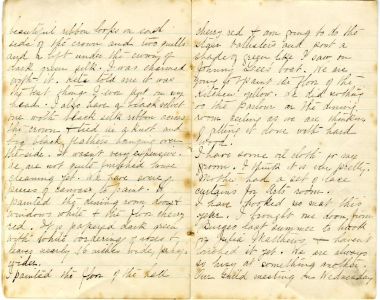 beautiful ribbon loops on each
side of the crown and two quills
and a loft under the crown, of
dark green silk. I was charmed
with it. all told me it was
the best thing I ever put on my
head. I also have a black velvet
one with black silk ribbon across
the crown & tied in a knot and
big black feathers hanging over
the side. It wasn't very expensive
We are not quite through house
cleaning yet. We have some
pieces of canvas to paint. I
painted the dining room, door &
windows white & the floor cherry
red. It is papered dark green
with white bordering of roses
nearly 20 inches wide,
wider.
I painted the floor of the hall
cherry red & am going to do the
stair balusters and post a
shade of green like I saw on
Johnny boat. We are
going to paint the floor of the
kitchen yellow. We did nothing
to the parlour or the dining
room ceiling as we are thinking
of ceiling it down with hard
wood.
I have some oil cloth for my
room. I think it is very pretty.
Mother sent a set of lace
curtains for room.
I have hooked no mat this
year. I brought me down from
Burgeo last summer to hook
Julia Matthews — haven't
touched it yet. We are always
so busy at something or other
Our Guild meeting on Wednesday